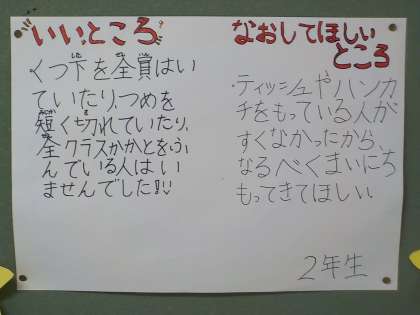 いいところ
くつ下を全員はい
ていたり、つめを
短く切れていたり、
全クラスかかとをふ
んでいる人はい
ませんでした!!
なおしてほしい
ところ
・ティッシュやハンカ
チをもっている人が
すくなかったから、
なるべくまいにち
もってきてほしい
2年生